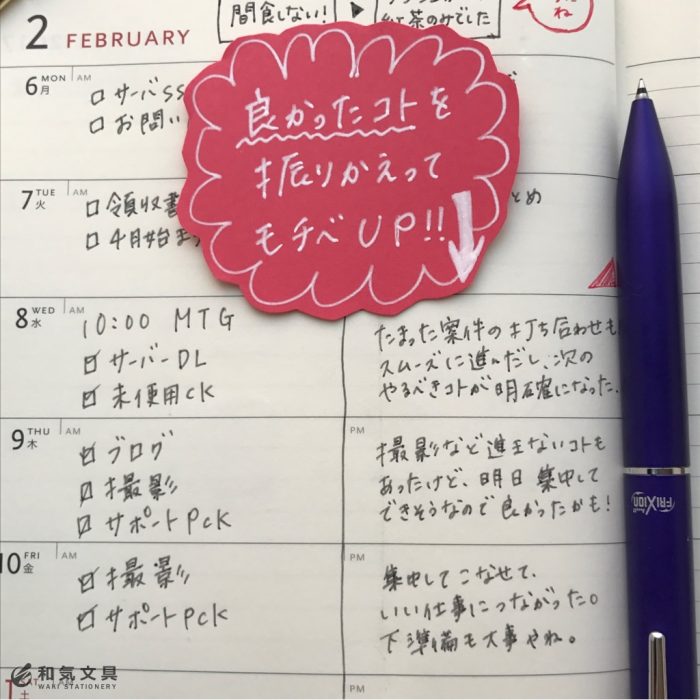 間食しない！ ▶
紅茶のみでした
ね
2 FEBRUARY
良かったコトを
振りかえって
モチベUP!!
6 MON 月 AM
サーバSS
お問い
7 TUE 火 AM
領収書
とめ
4月始ま
8 WED 水 AM
10:00 MTG
サーバーDL
未使用ck
たまった案件の打ち合わせも
スムーズに進んだし、次の
やるべきコトが明確になった。
9 THU 木 AM
ブログ
撮影
サポートPck
PM
撮影など進まないコトも
あったけど、明日集中して
できそうなので良かったかも！
10 FRI 金 AM
撮影
サポートPck
PM
集中してこなせて、
いい仕事につながった。
下準備も大事やね。
SAT 土 AM
PM
FRIXION
和気文具
WAKI STATIONERY